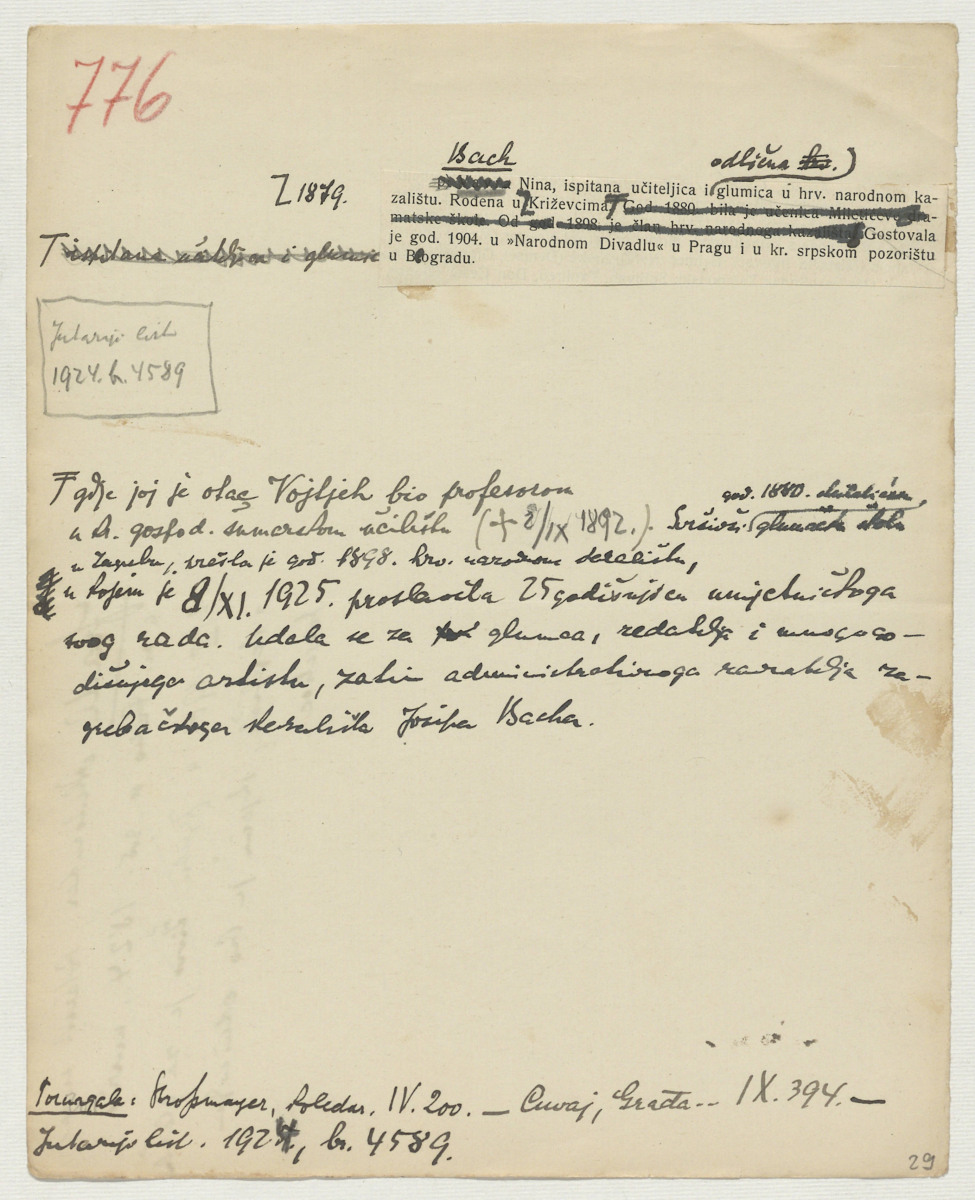 776
Bach
odlična
Z 1879.
Nina, ispitana učiteljica i glumica u hrv. narodnom ka-
zalištu. Rođena u Križevcima. God 1880. bila je učenica Miletićeve dra-
matske škole. Od god 1898. je član hrv. narodnoga kazališta. Gostovala
je god. 1904. u »Narodnom Divadlu« u Pragu i u kr. srpskom pozorištu
u Beogradu.
T ispitana učiteljica i glumica
Jutarnji list
1924. br. 4589
F gdje joj je otac Vojtjeh bio profesorom
god. 1880.
u kr. gospod. šumarskom učilištu († 2/IX 1892.). Svršivši glumačku školu
u Zagrebu, prešla je god. 1898. hrv. narodnom kazalištu,
u kojem je 8/XI. 1925. proslavila 25 godišnjicu umjetničkoga
svog rada. Udala se za glumca, redatelja i mnogogo-
dišnjega artistu, zatim administrativnoga ravnatelja za-
grebačkoga kazališta Josipa Bacha.
Pomagala: Stroßmayer, koledar. IV. 200. — Cuvaj, Građa -- IX. 394. —
Jutarnji list. 1924, br. 4589.
29